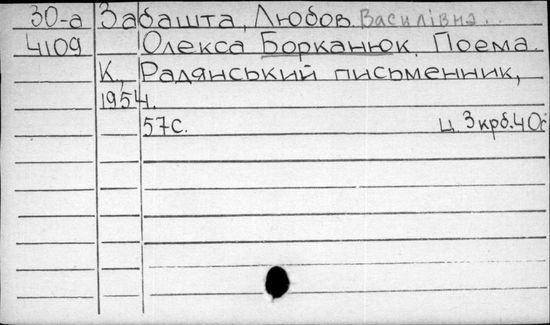 30-а Забашта, Любов Василівна...
4109 Олекса Борканюк. Поема.
К., Радянський письменник,
1954.
57с. ц. 3крб.40с